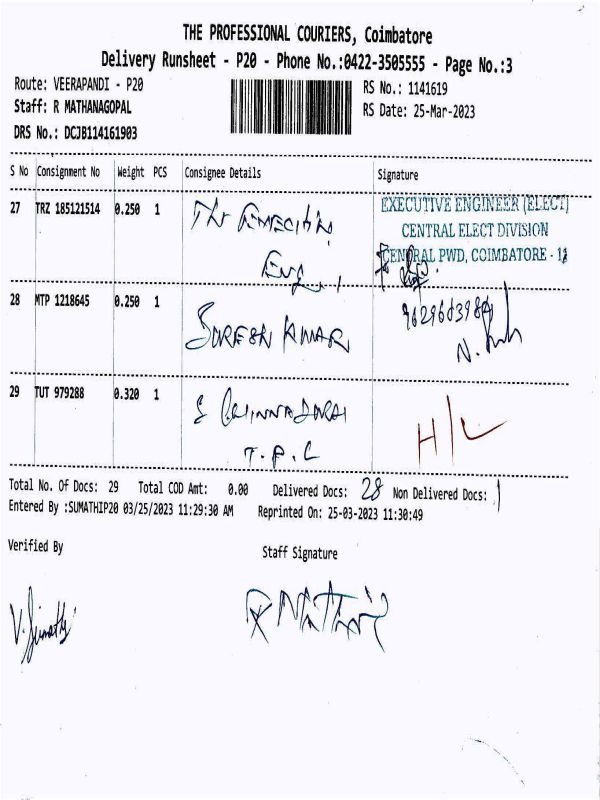 THE PROFESSIONAL COURIERS, Coimbatore
Delivery Runsheet - P20 - Phone No.:0422-3505555 - Page No.:3
Route: VEERAPANDI - P20
RS No.: 1141619
Staff: R MATHANAGOPAL
RS Date: 25-Mar-2023
DRS No.: DCJB114161903
S No Consignment No Weight PCS Consignee Details Signature
27 TRZ 185121514 0.250 1 The Executive
Eng.,
EXECUTIVE ENGINEER (ELECT)
CENTRAL ELECT DIVISION
CENTRAL PWD, COIMBATORE - 18
28 MTP 1218645 0.250 1 SURESH KUMAR
29 TUT 979288 0.320 1 S CHINNADURAI
T.P.C
H/L
Total No. Of Docs: 29 Total COD Amt: 0.00 Delivered Docs: 28 Non Delivered Docs: 1
Entered By :SUMATHIP20 03/25/2023 11:29:30 AM Reprinted On: 25-03-2023 11:30:49
Verified By
Staff Signature